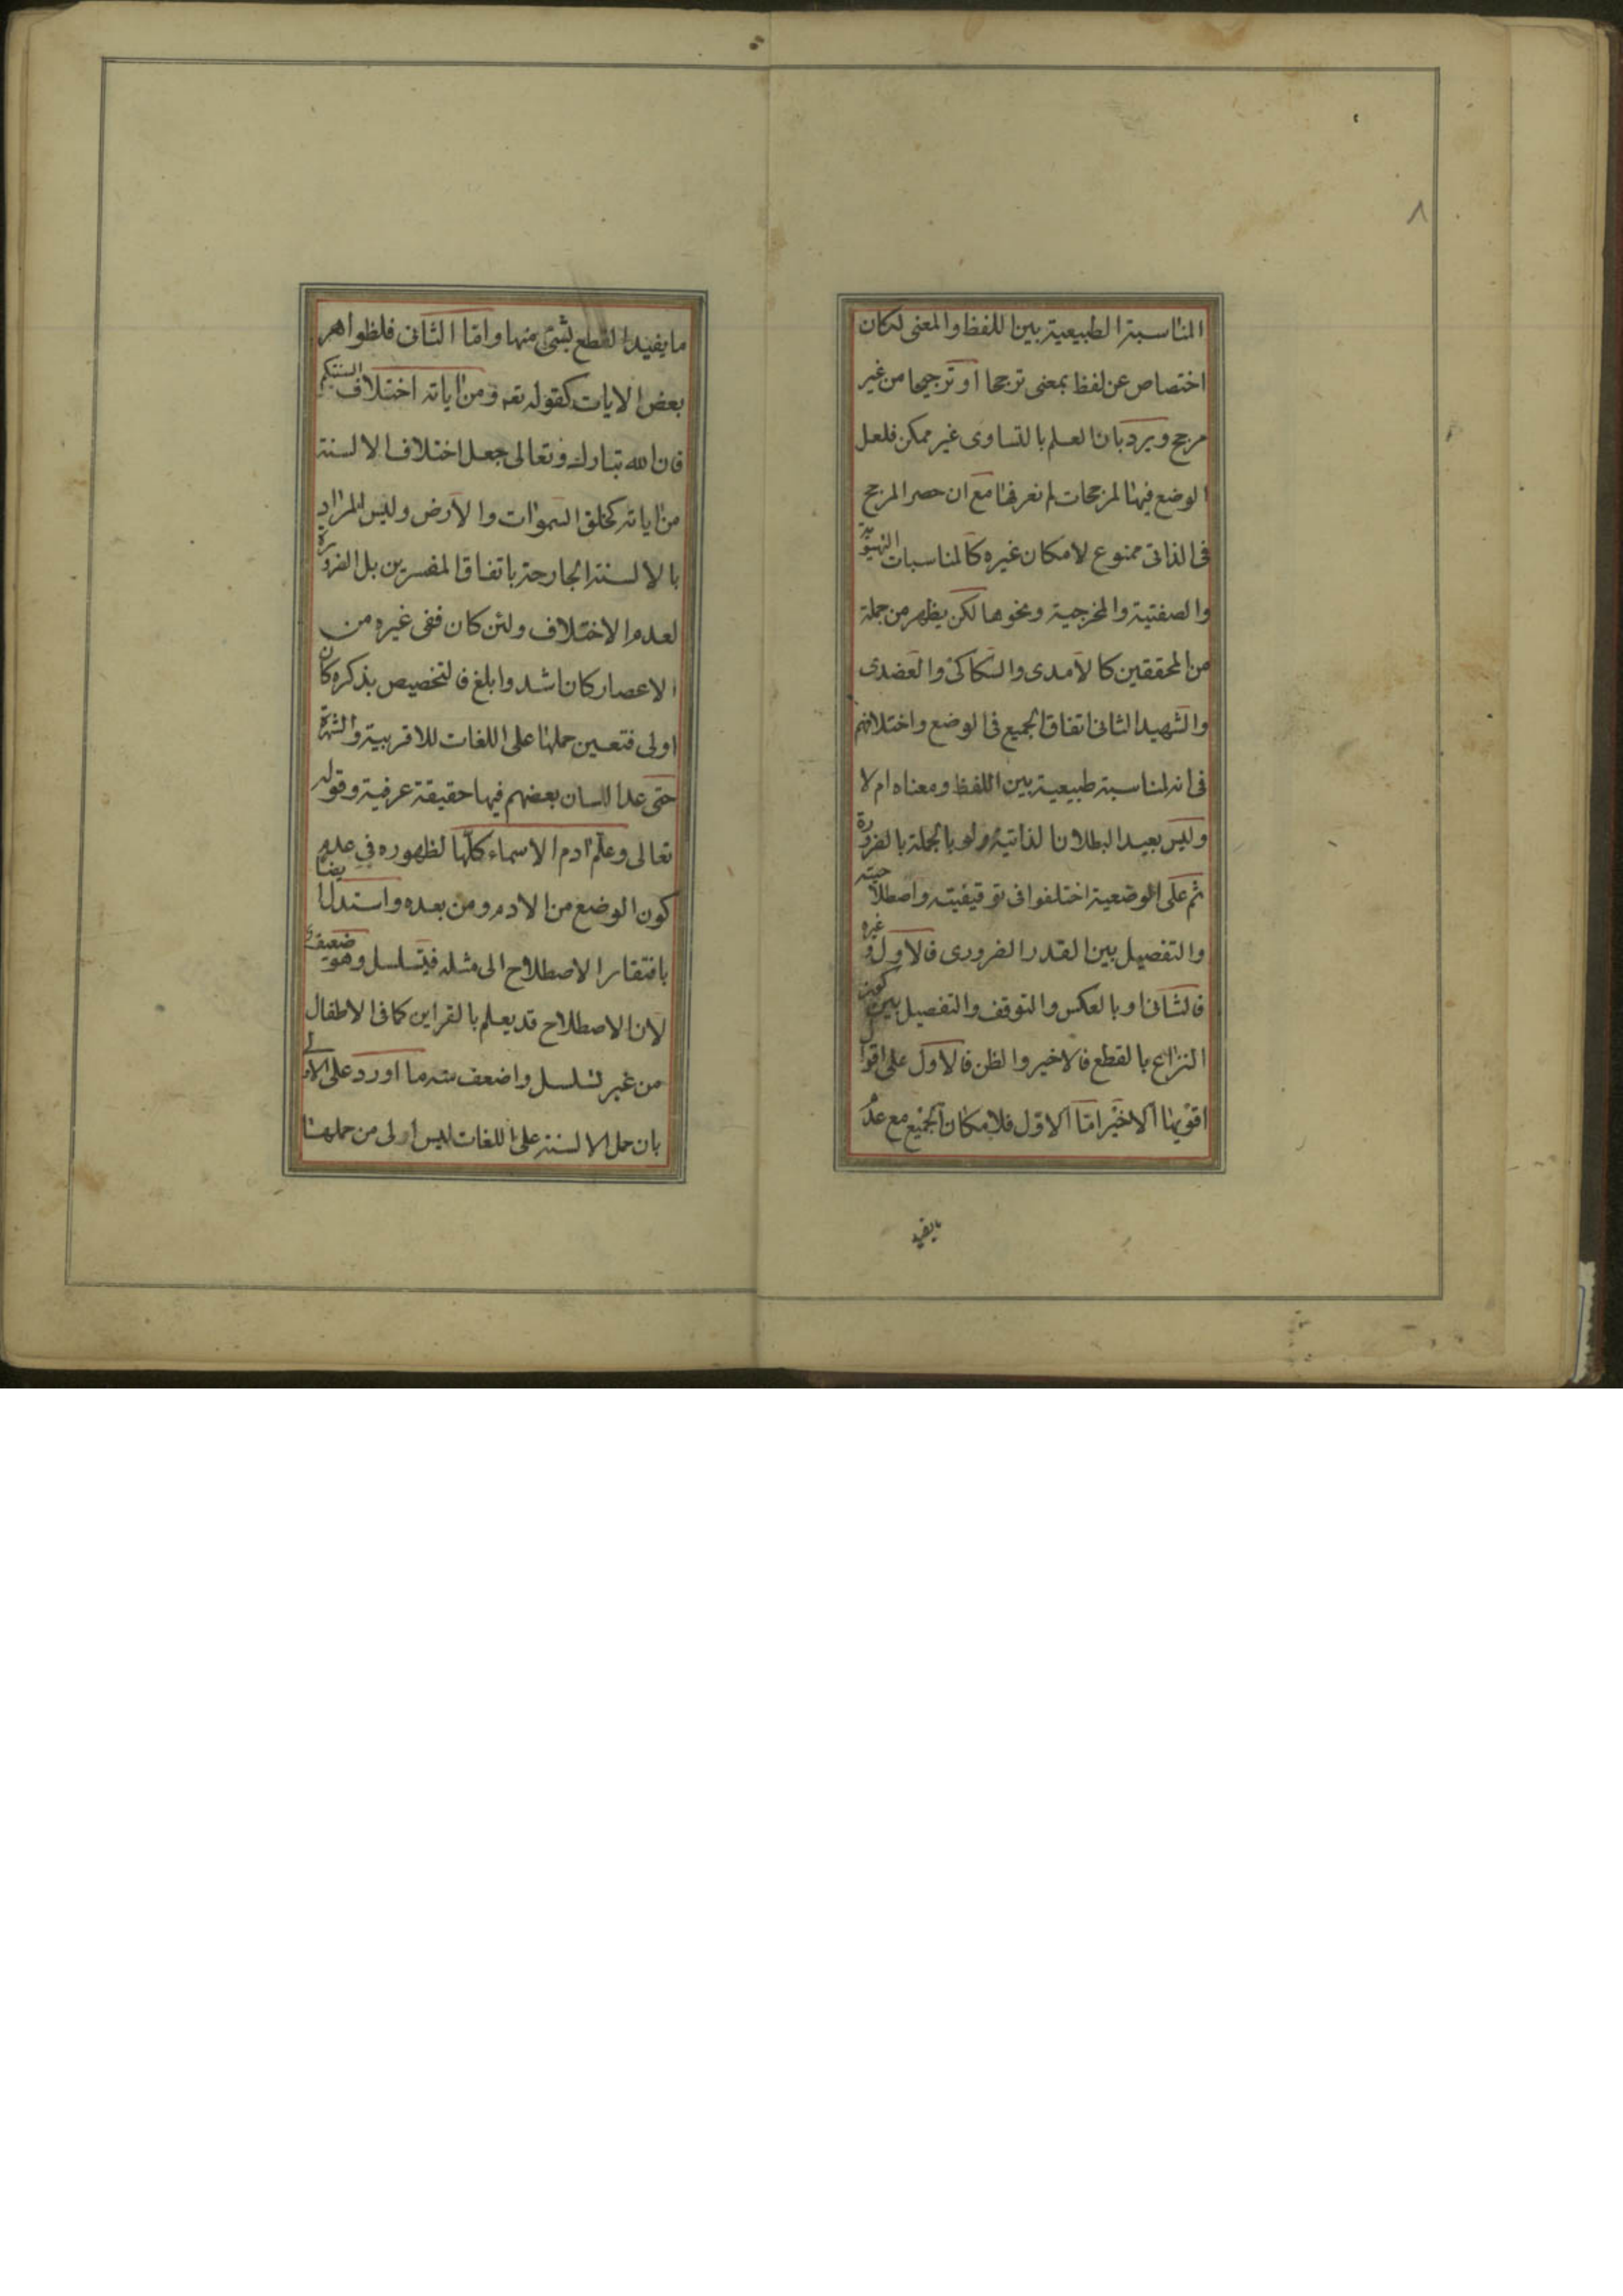 ٨
المناسبة الطبيعية بين اللفظ والمعنى لكان
اختصاص عن لفظ بمعنى ترجحا او ترجيحا من غير
مرجح ويرد بان العلم بالتساوى غير ممكن فلعل
الوضع فيها لمرجحات لم نعرفها مع ان حصر المرجح
فى الذاتى ممنوع لامكان غيره كالمناسبات
والصفتية والمخرجية ونحوها لكن يظهر من جملة
من المحققين كالآمدى والسكاكى والعضدى
والشهيد الثانى اتفاق الجميع فى الوضع واختلافهم
فى انه لمناسبة طبيعية بين اللفظ ومعناه ام لا
وليس بعيد البطلان الذاتية ولو بالجملة بالضرورة
ثم على الوضعية اختلفوا فى توقيفيته واصطلاحيته
والتفصيل بين القدر الضرورى فالاول وغيره
فالثانى او بالعكس والتوقف والتفصيل بين كون
النزاع بالقطع فالاخير والظن فالاول على اقوال
اقويها الاخير اما الاول فلامكان الجميع مع عدم
مايفيد
ما يفيد القطع بشئ منها واما الثانى فلظواهر
بعض الايات كقوله تعه ومن اياته اختلاف السنتكم
فان الله تبارك وتعالى جعل اختلاف الالسنة
من اياته كخلق السموات والارض وليس المراد
بالالسنة الجارحة باتفاق المفسرين بل الضرورة
لعدم الاختلاف ولئن كان ففى غيره من
الاعصار كان اشد وابلغ فالتخصيص بذكره كان
اولى فتعين حملها على اللغات للاقربية والشهرة
حتى عد اللسان بعضهم فيها حقيقة عرفية وقوله
تعالى وعلم ادم الاسماء كلها لظهوره فى عدم
كون الوضع من الادم ومن بعده واستدل ايضا
بافتقار الاصطلاح الى مثله فيتسلسل وهو ضعيف
لان الاصطلاح قد يعلم بالقراين كما فى الاطفال
من غير تسلسل واضعف منه ما اورد على الاولى
بان حمل الالسنة على اللغات ليس اولى من حملها